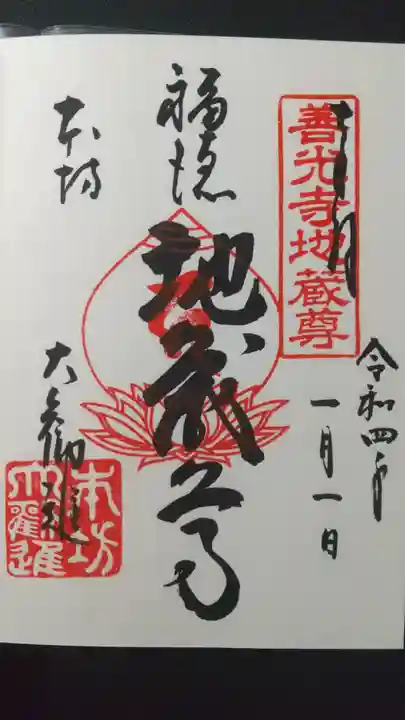 善光寺地蔵尊
令和四年
一月一日
福徳
地蔵尊
本坊
大勧進
本坊
大勧進